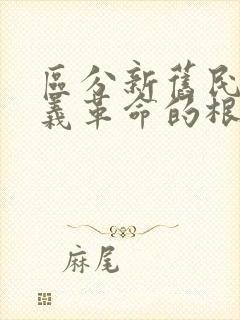 區分新舊民
義革命的根
麻尾